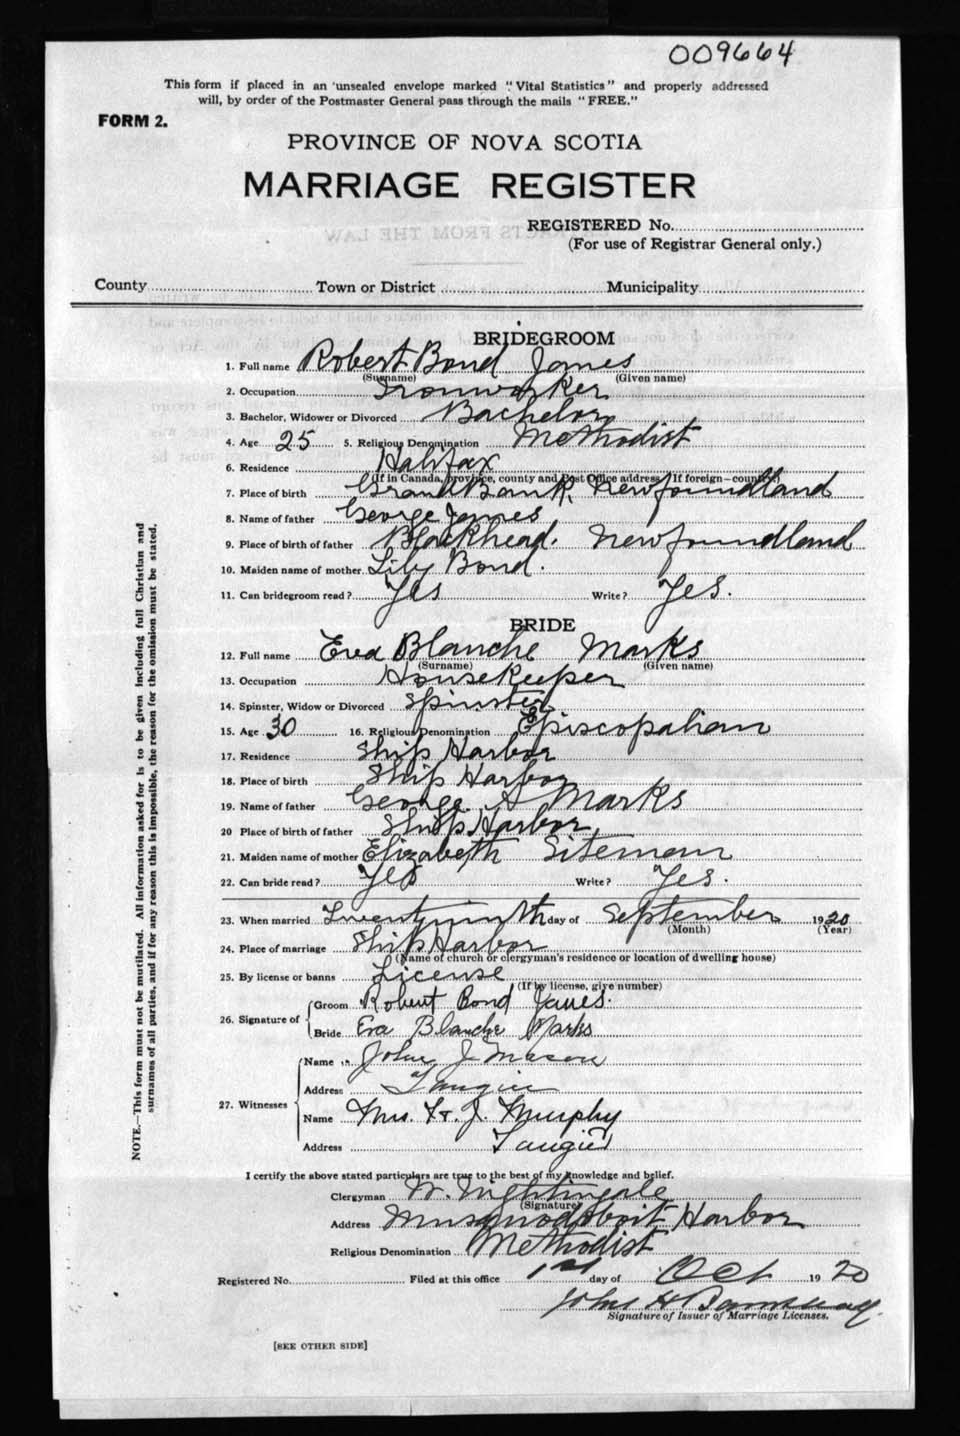 009664
This form if placed in an unsealed envelope marked "Vital Statistics" and properly addressed
will, by order of the Postmaster General pass through the mails "FREE."
FORM 2.
PROVINCE OF NOVA SCOTIA
MARRIAGE REGISTER
REGISTERED No.
(For use of Registrar General only.)
County Town or District Municipality
BRIDEGROOM
1. Full name Robert Bond James
(Surname) (Given name)
2. Occupation Ironworker
3. Bachelor, Widower or Divorced Bachelor
4. Age 25 5. Religious Denomination Methodist
6. Residence Halifax
(If in Canada, province, county and Post Office address. If foreign—country.)
7. Place of birth Grand Bank, Newfoundland
8. Name of father George James
9. Place of birth of father Blackhead. Newfoundland
10. Maiden name of mother Lily Bond.
11. Can bridegroom read? Yes Write? Yes.
BRIDE
12. Full name Eva Blanche Marks
(Surname) (Given name)
13. Occupation Housekeeper
14. Spinster, Widow or Divorced Spinster
15. Age 30 16. Religious Denomination Episcopalian
17. Residence Ship Harbor
18. Place of birth Ship Harbor
19. Name of father George A Marks
20 Place of birth of father Ship Harbor
21. Maiden name of mother Elizabeth Siteman
22. Can bride read? Yes Write? Yes.
23. When married Twentyninth day of September 1920
(Month) (Year)
24. Place of marriage Ship Harbor
(Name of church or clergyman's residence or location of dwelling house)
25. By license or banns License
(If by license, give number)
26. Signature of
Groom Robert Bond James.
Bride Eva Blanche Marks
27. Witnesses
Name John J Mason
Address Tangier
Name Mrs. H. J. Murphy
Address Tangier
I certify the above stated particulars are true to the best of my knowledge and belief.
Clergyman W. Nightingale
(Signature)
Address Musquodoboit Harbor
Religious Denomination Methodist
Registered No. Filed at this office 1st day of Oct 1920
John H
Signature of Issuer of Marriage Licenses.
[SEE OTHER SIDE]
NOTE.—This form must not be mutilated. All information asked for is to be given including full Christian and
surnames of all parties, and if for any reason this is impossible, the reason for the omission must be stated.